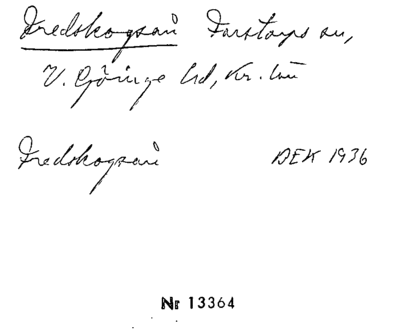 Fredskogsån Farstorps sn,
V. Göinge hd, Kr. län
Fredskogsån DEK 1936
Nr 13364